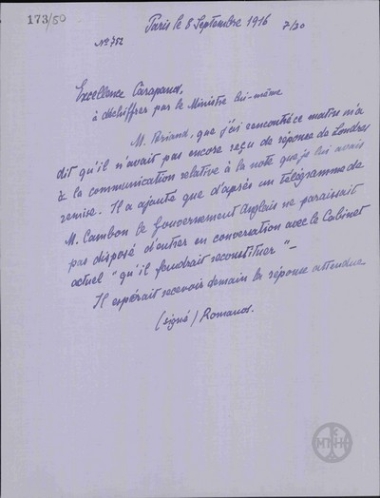 173/50
Paris le 8 Septembre 1916
7/20
No 752
Excellence Carapanos,
à déchiffrer par le Ministre lui-même
M. Briand, que j'ai rencontré ce matin m'a
dit qu'il n'avait pas encore reçu de réponse de Londres
à la communication relative à la note que je lui avais
remise. Il a ajouté que d'après un télégramme de
M. Cambon le gouvernement Anglais ne paraissait
pas disposé d'entrer en conversation avec le Cabinet
actuel "qu'il faudrait reconstituer" -
Il espérait recevoir demain la réponse attendue
(signé) Romanos.